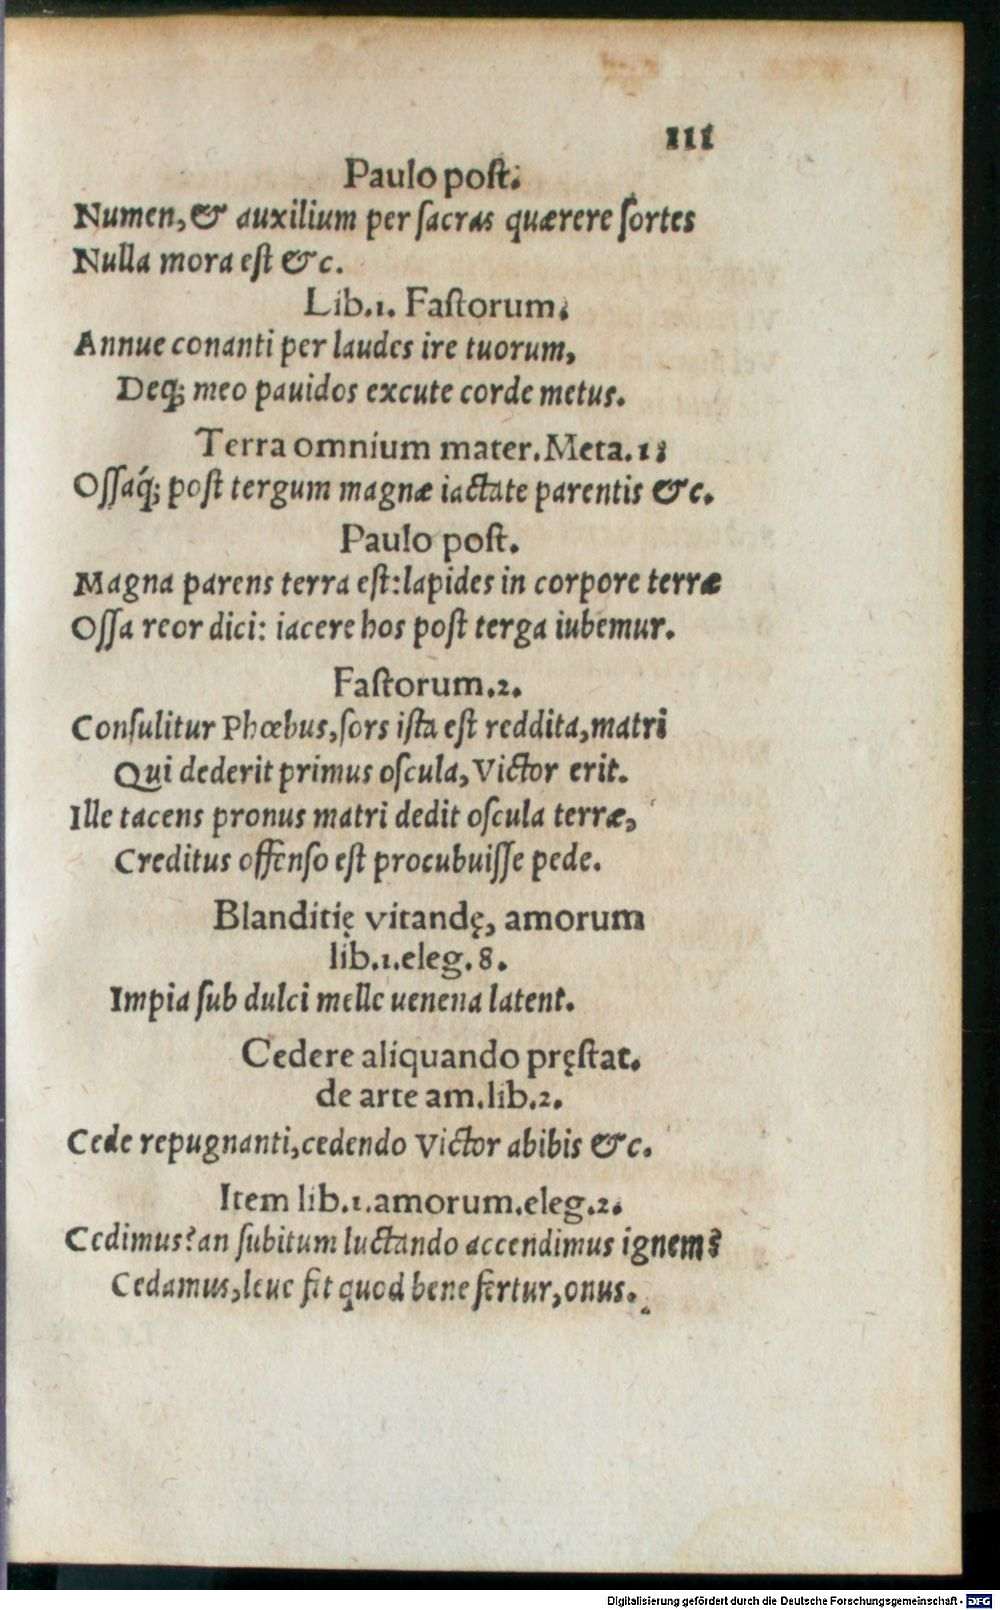 111
Paulo poſt.
Numen, & auxilium per ſacras quærere ſortes
Nulla mora eſt &c.
Lib.1. Faſtorum.
Annue conanti per laudes ire tuorum,
Deq; meo pauidos excute corde metus.
Terra omnium mater. Meta.1.
Oſſaq́; poſt tergum magnæ iactate parentis &c.
Paulo poſt.
Magna parens terra eſt: lapides in corpore terræ
Oſſa reor dici: iacere hos poſt terga iubemur.
Faſtorum.2.
Conſulitur Phœbus, ſors iſta eſt reddita, matri
Qui dederit primus oſcula, Victor erit.
Ille tacens pronus matri dedit oſcula terræ,
Creditus offenſo eſt procubuiſſe pede.
Blanditię vitandę, amorum
lib.1.eleg.8.
Impia ſub dulci melle uenena latent.
Cedere aliquando pręſtat.
de arte am.lib.2.
Cede repugnanti, cedendo Victor abibis &c.
Item lib.1.amorum.eleg.2.
Cedimus? an ſubitum luctando accendimus ignem?
Cedamus, leue fit quod bene fertur, onus.
Digitalisierung gefördert durch die Deutsche Forschungsgemeinschaft - DFG